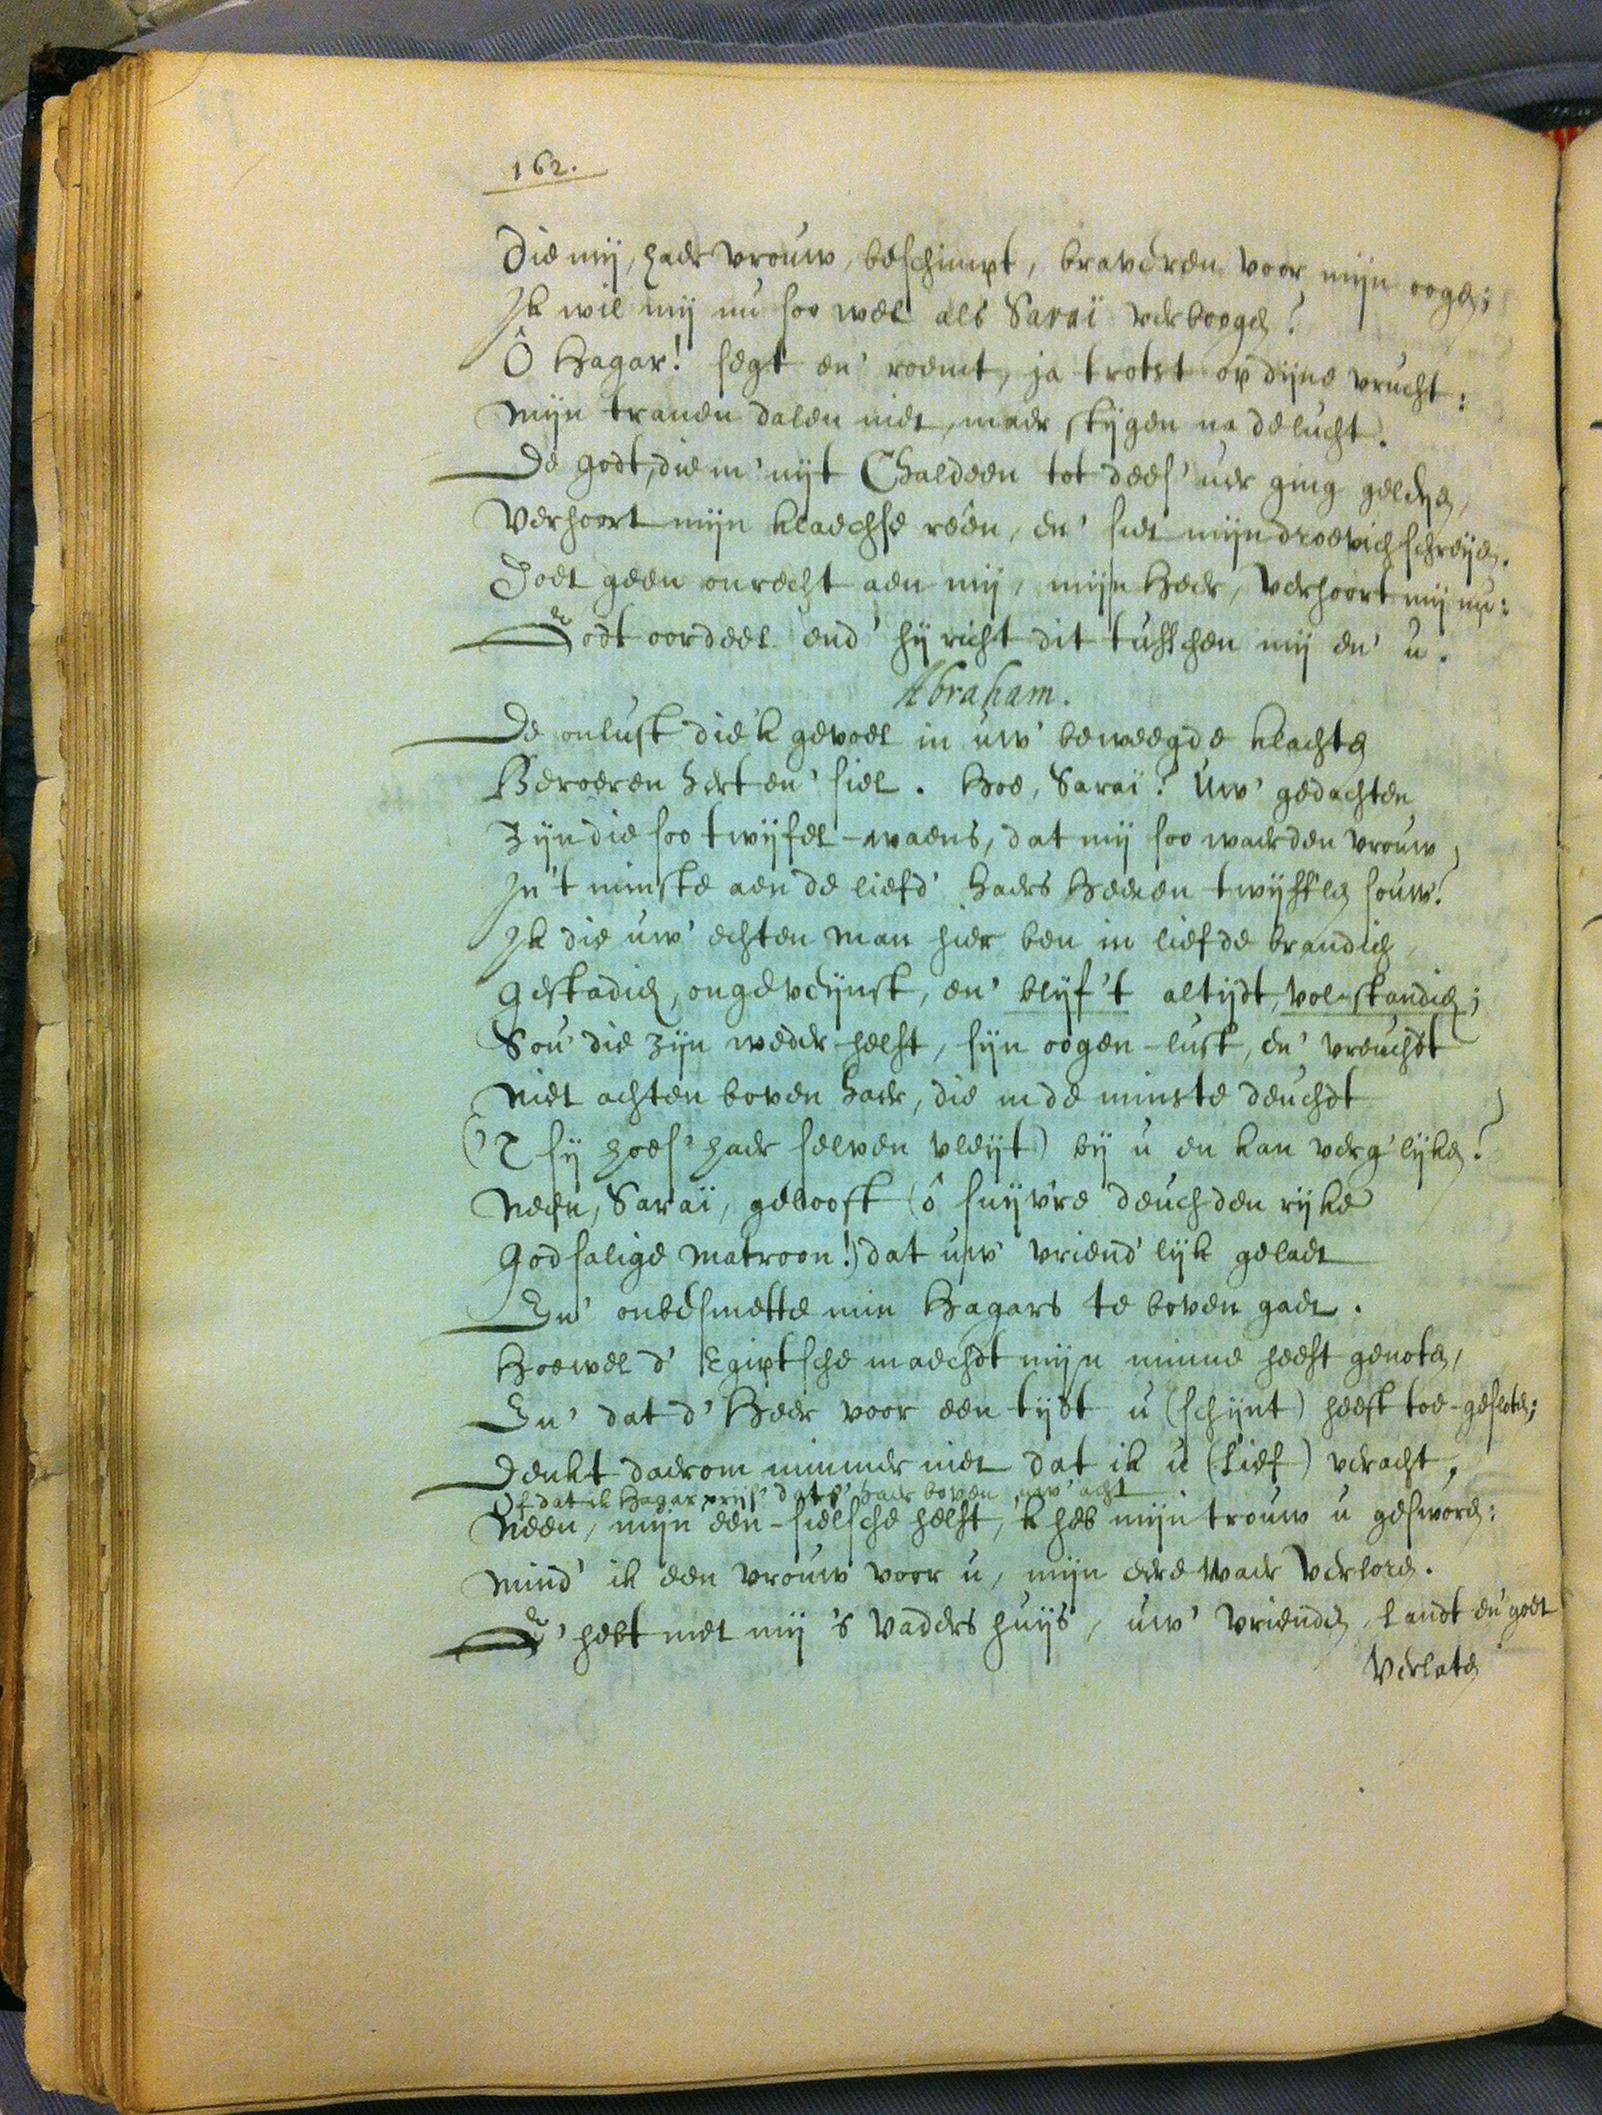 162.
Die mij, haer vrouw, beschimpt, braveren voor mijn oogen;
Ik wil mij nu soo wel als Saraï verboogen?
Ô Hagar! segt en' roemt, ja trotst op dijne vrucht:
Mijn tranen dalen niet, maer stijgen na de lucht.
De Godt, die m' uijt Chaldeen tot dees' uer ging geleijen,
Verhoort mijn klaechse reên, en' siet mijn droevich schreijen.
Doet geen onrecht aen mij, mijn Heer, verhoort mij nu:
Godt oordeel end' hij richt dit tusschen mij en' u.
Abraham.
De onlust die'k gevoel in uw' beweegde klachten
Beroeren hert en' siel. Hoe, Saraï? Uw' gedachten
Zijn die soo twijfel-waens, dat mij soo waerden vrouw
In 't minste aen de liefd' haers Heeren twijff'len souw?
Ik die uw' echten man hier ben in liefde brandich,
Gestadich, ongeveijnst, en' blijf't altijdt, vol-standich;
Sou' die zijn weder-helft, sijn oogen-lust, en' vreuchdt
Niet achten boven haer, die in de minste deuchdt
('T sij hoes' haer selven vleijt) bij u en kan verg'lijken?
Neen, Saraï, gelooft (ô suijv're deuchden rijke
Godsalige Matroon!) dat uw' vriend'lijk gelaet
En' onbesmette min Hagars te boven gaet.
Hoewel d' Egiptsche maechdt mijn minne heeft genoten,
En' dat d' Heer voor een tijdt u (schijnt) heeft toe-gesloten;
Denkt daerom nimmer niet dat ik u (Lief) veracht,
Of dat ik Hagar prijs' dat'k haer boven uw' acht
Neen, mijn een-sielsche helft, 'k heb mijn trouw u gesworen:
Mind' ik een vrouw voor u, mijn eere waer verloren.
G' hebt met mij 's Vaders huijs, uw' vrienden, landt en' goet
Verlaten